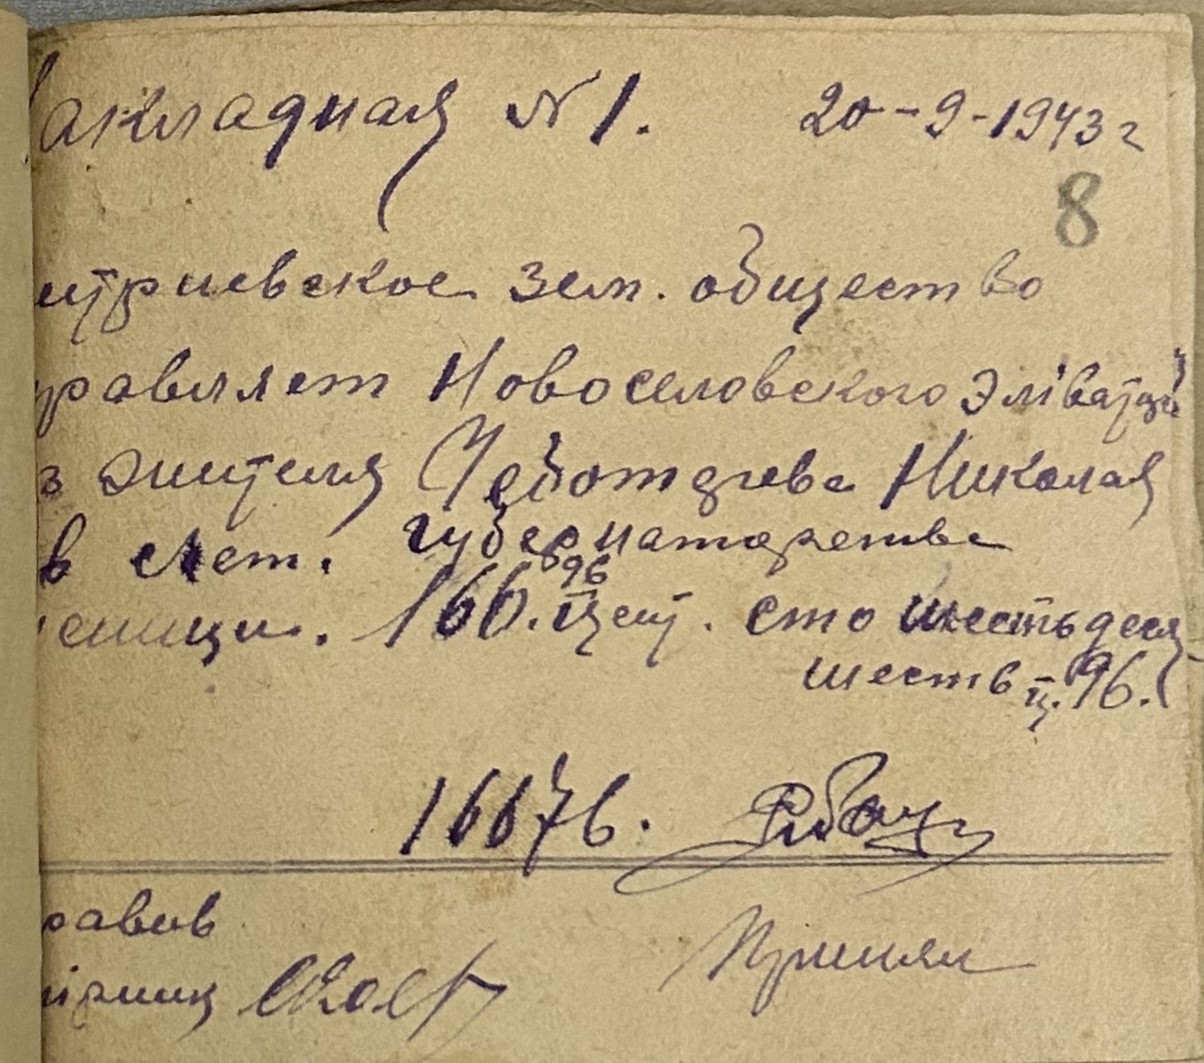 акладная №1. 20-9-1943 г
8
итриевское зем. общество
равляет Новоселовского
з жителя Чеботарева Николая
в счет. губернаторства
еницы. 166.96 цент. сто шестьдеся
шесть ц. 96.
равив
Принял